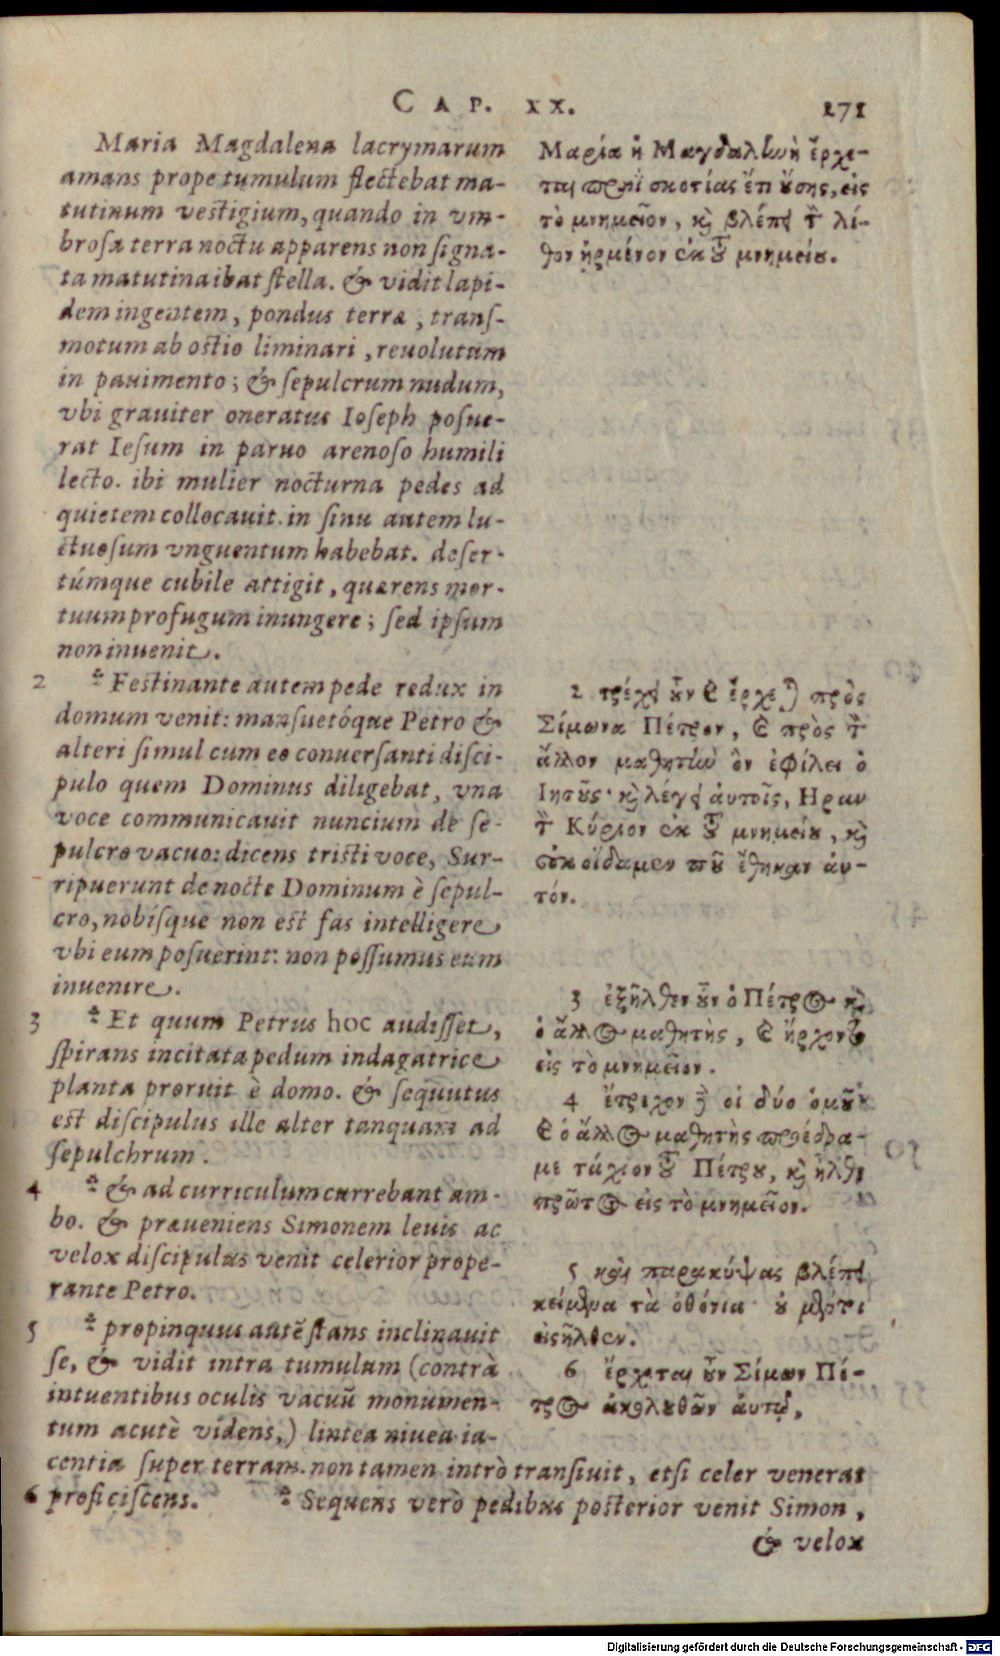 CAP. XX. 271
Maria Magdalena lacrymarum
amans prope tumulum flectebat ma-
tutinum vestigium, quando in vm-
brosa terra noctu apparens non signa-
ta matutina ibat stella. & vidit lapi-
dem ingentem, pondus terræ, trans-
motum ab ostio liminari, reuolutum
in pauimento; & sepulcrum nudum,
vbi grauiter oneratus Ioseph posue-
rat Iesum in paruo arenoso humili
lecto. ibi mulier nocturna pedes ad
quietem collocauit. in sinu autem lu-
ctuosum vnguentum habebat. deser-
túmque cubile attigit, quærens mor-
tuum profugum inungere; sed ipsum
non inuenit.
2 * Festinante autem pede redux in
domum venit: mansuetóque Petro &
alteri simul cum eo conuersanti disci-
pulo quem Dominus diligebat, vna
voce communicauit nuncium de se-
pulcro vacuo: dicens tristi voce, Sur-
ripuerunt de nocte Dominum è sepul-
cro, nobísque non est fas intelligere
vbi eum posuerint: non possumus eum
inuenire.
3 * Et quum Petrus hoc audisset,
spirans incitata pedum indagatrice
planta proruit è domo. & sequutus
est discipulus ille alter tanquam ad
sepulchrum.
4 * & ad curriculum currebant am-
bo. & præueniens Simonem leuis ac
velox discipulus venit celerior prope-
rante Petro.
5 * propinquus autē stans inclinauit
se, & vidit intra tumulum (contrà
intuentibus oculis vacuū monumen-
tum acutè videns,) lintea niuea ia-
centia super terram. non tamen intrò transiuit, etsi celer venerat
6 proficiscens. * Sequens verò pedibus posterior venit Simon,
& velox
Μαρία ἡ Μαγδαλωὴ ἔρχε-
ται πρωῒ σκοτίας ἔπι ὔσης, εἰς
τὸ μνημεῖον, καὶ βλέπει τὸν λί-
θον ἠρμένον ἐκ τοῦ μνημείου.
2 τρέχει οὖν καὶ ἔρχεται πρὸς
Σίμωνα Πέτρον, καὶ πρὸς τὸν
ἄλλον μαθητὴν ὃν ἐφίλει ὁ
Ιησοῦς· καὶ λέγει ἀυτοῖς, Ηραν
τὸν Κύριον ἐκ τοῦ μνημείου, καὶ
οὐκ οἴδαμεν ποῦ ἔθηκαν ἀυ-
τόν.
3 ἐξῆλθεν οὖν ὁ Πέτρος καὶ
ὁ ἄλλος μαθητὴς, καὶ ἤρχοντο
εἰς τὸ μνημεῖον.
4 ἔτρεχον δὲ οἱ δύο ὁμοῦ·
καὶ ὁ ἄλλος μαθητὴς προέδρα-
με τάχιον τοῦ Πέτρου, καὶ ἦλθε
πρῶτος εἰς τὸ μνημεῖον.
5 καὶ παρακύψας βλέπει
κείμενα τὰ ὀθόνια· οὐ μέντοι
εἰσῆλθεν.
6 ἔρχεται οὖν Σίμων Πέ-
τρος ἀκολουθῶν ἀυτῷ,
Digitalisierung gefördert durch die Deutsche Forschungsgemeinschaft - DFG